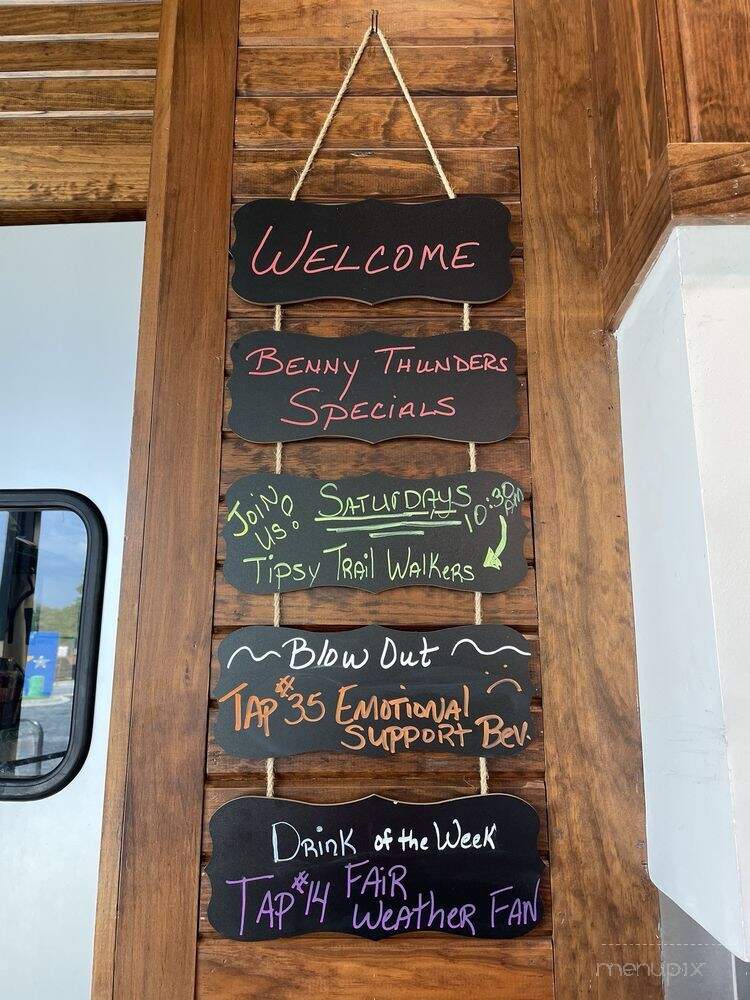 WELCOME
BENNY THUNDERS
SPECIALS
JOIN US! SATURDAYS 10:30 AM
TIPSY TRAIL WALKERS
~ Blow Out ~
TAP #35 EMOTIONAL
SUPPORT BEV.
DRINK of the Week
TAP #14 FAIR
WEATHER FAN
menupix